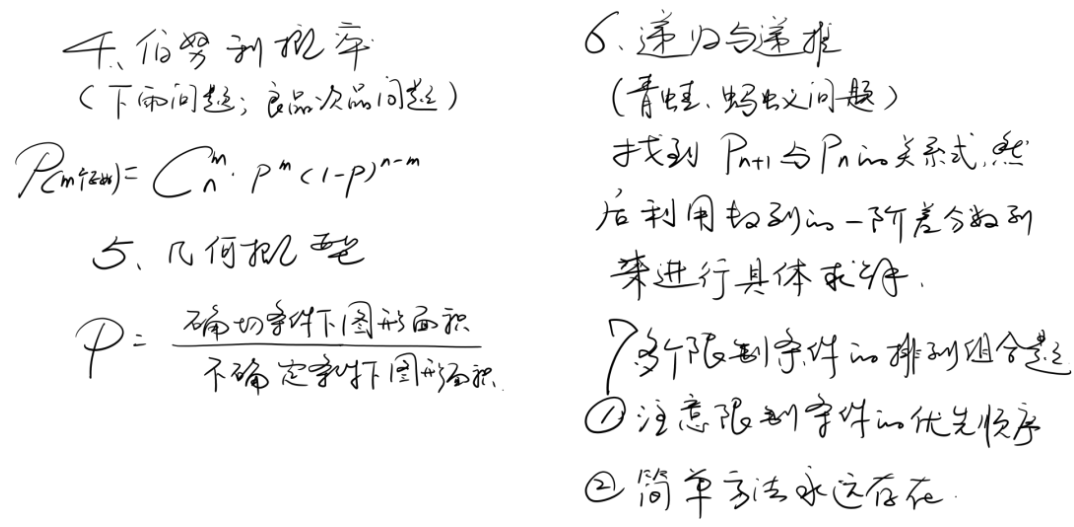 4、伯努利概率
(下雨问题;良品次品问题)
P(m个正面)= C_n^m · p^m (1-p)^{n-m}
5、几何概型
P = 确切条件下图形面积 / 不确定条件下图形面积
6、递归与递推
(青蛙、蚂蚁问题)
找到 P_{n+1} 与 P_n 的关系式,然
后利用数列的一阶差分数列
来进行具体求解.
7多个限制条件的排列组合题
① 注意限制条件的优先顺序
② 简单方法永远存在.